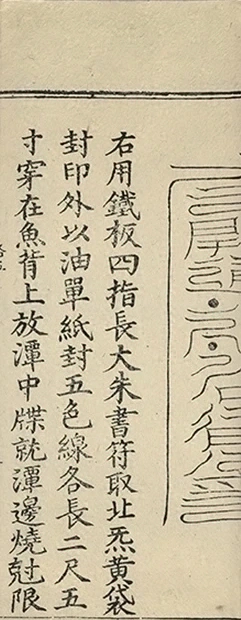 右用鐵板四指長大朱書符取北炁黃袋
封印外以油單紙封五色線各長二尺五
寸穿在魚背上放潭中牒就潭邊燒尅限